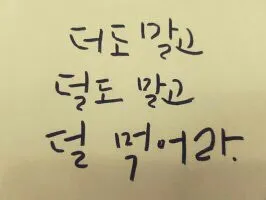 더도 말고
덜도 말고
덜 먹어라.